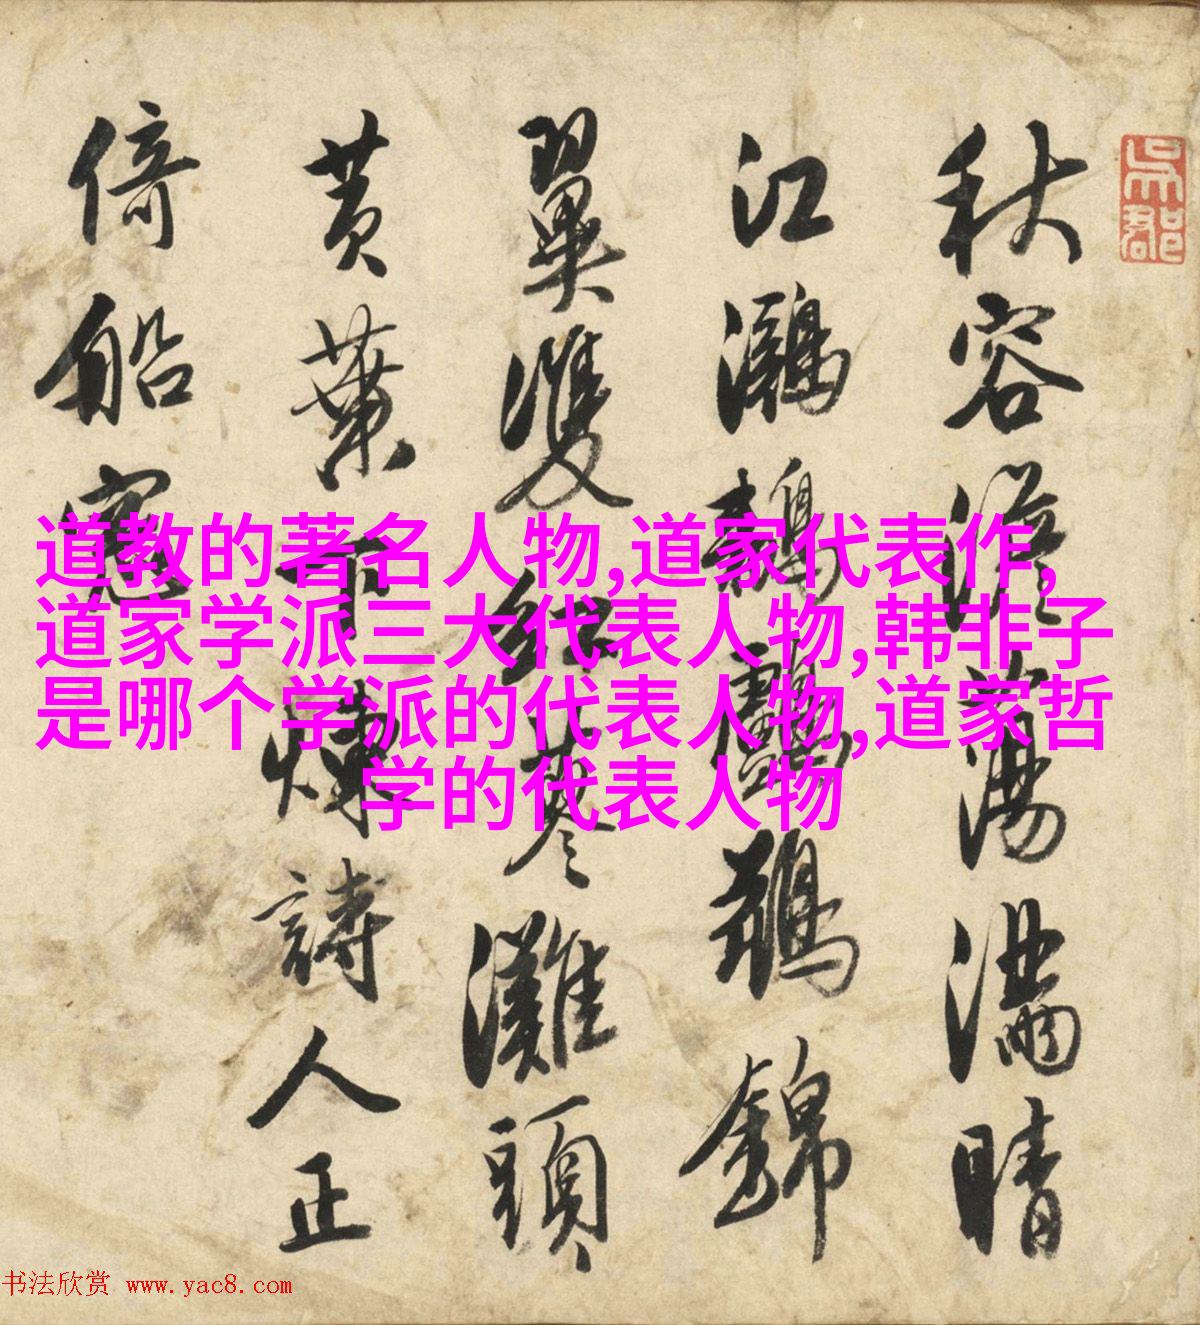 吳郡
秋容澹蕩滿晴
江鸂鶒鸕鷀錦
翼雙紅蓼灘頭
黄葉下煉詩人正
倚船窓
道教的著名人物,道家代表作,
道家学派三大代表人物,韩非子
是哪个学派的代表人物,道家哲
学的代表人物
书法欣赏 www.yac8.com